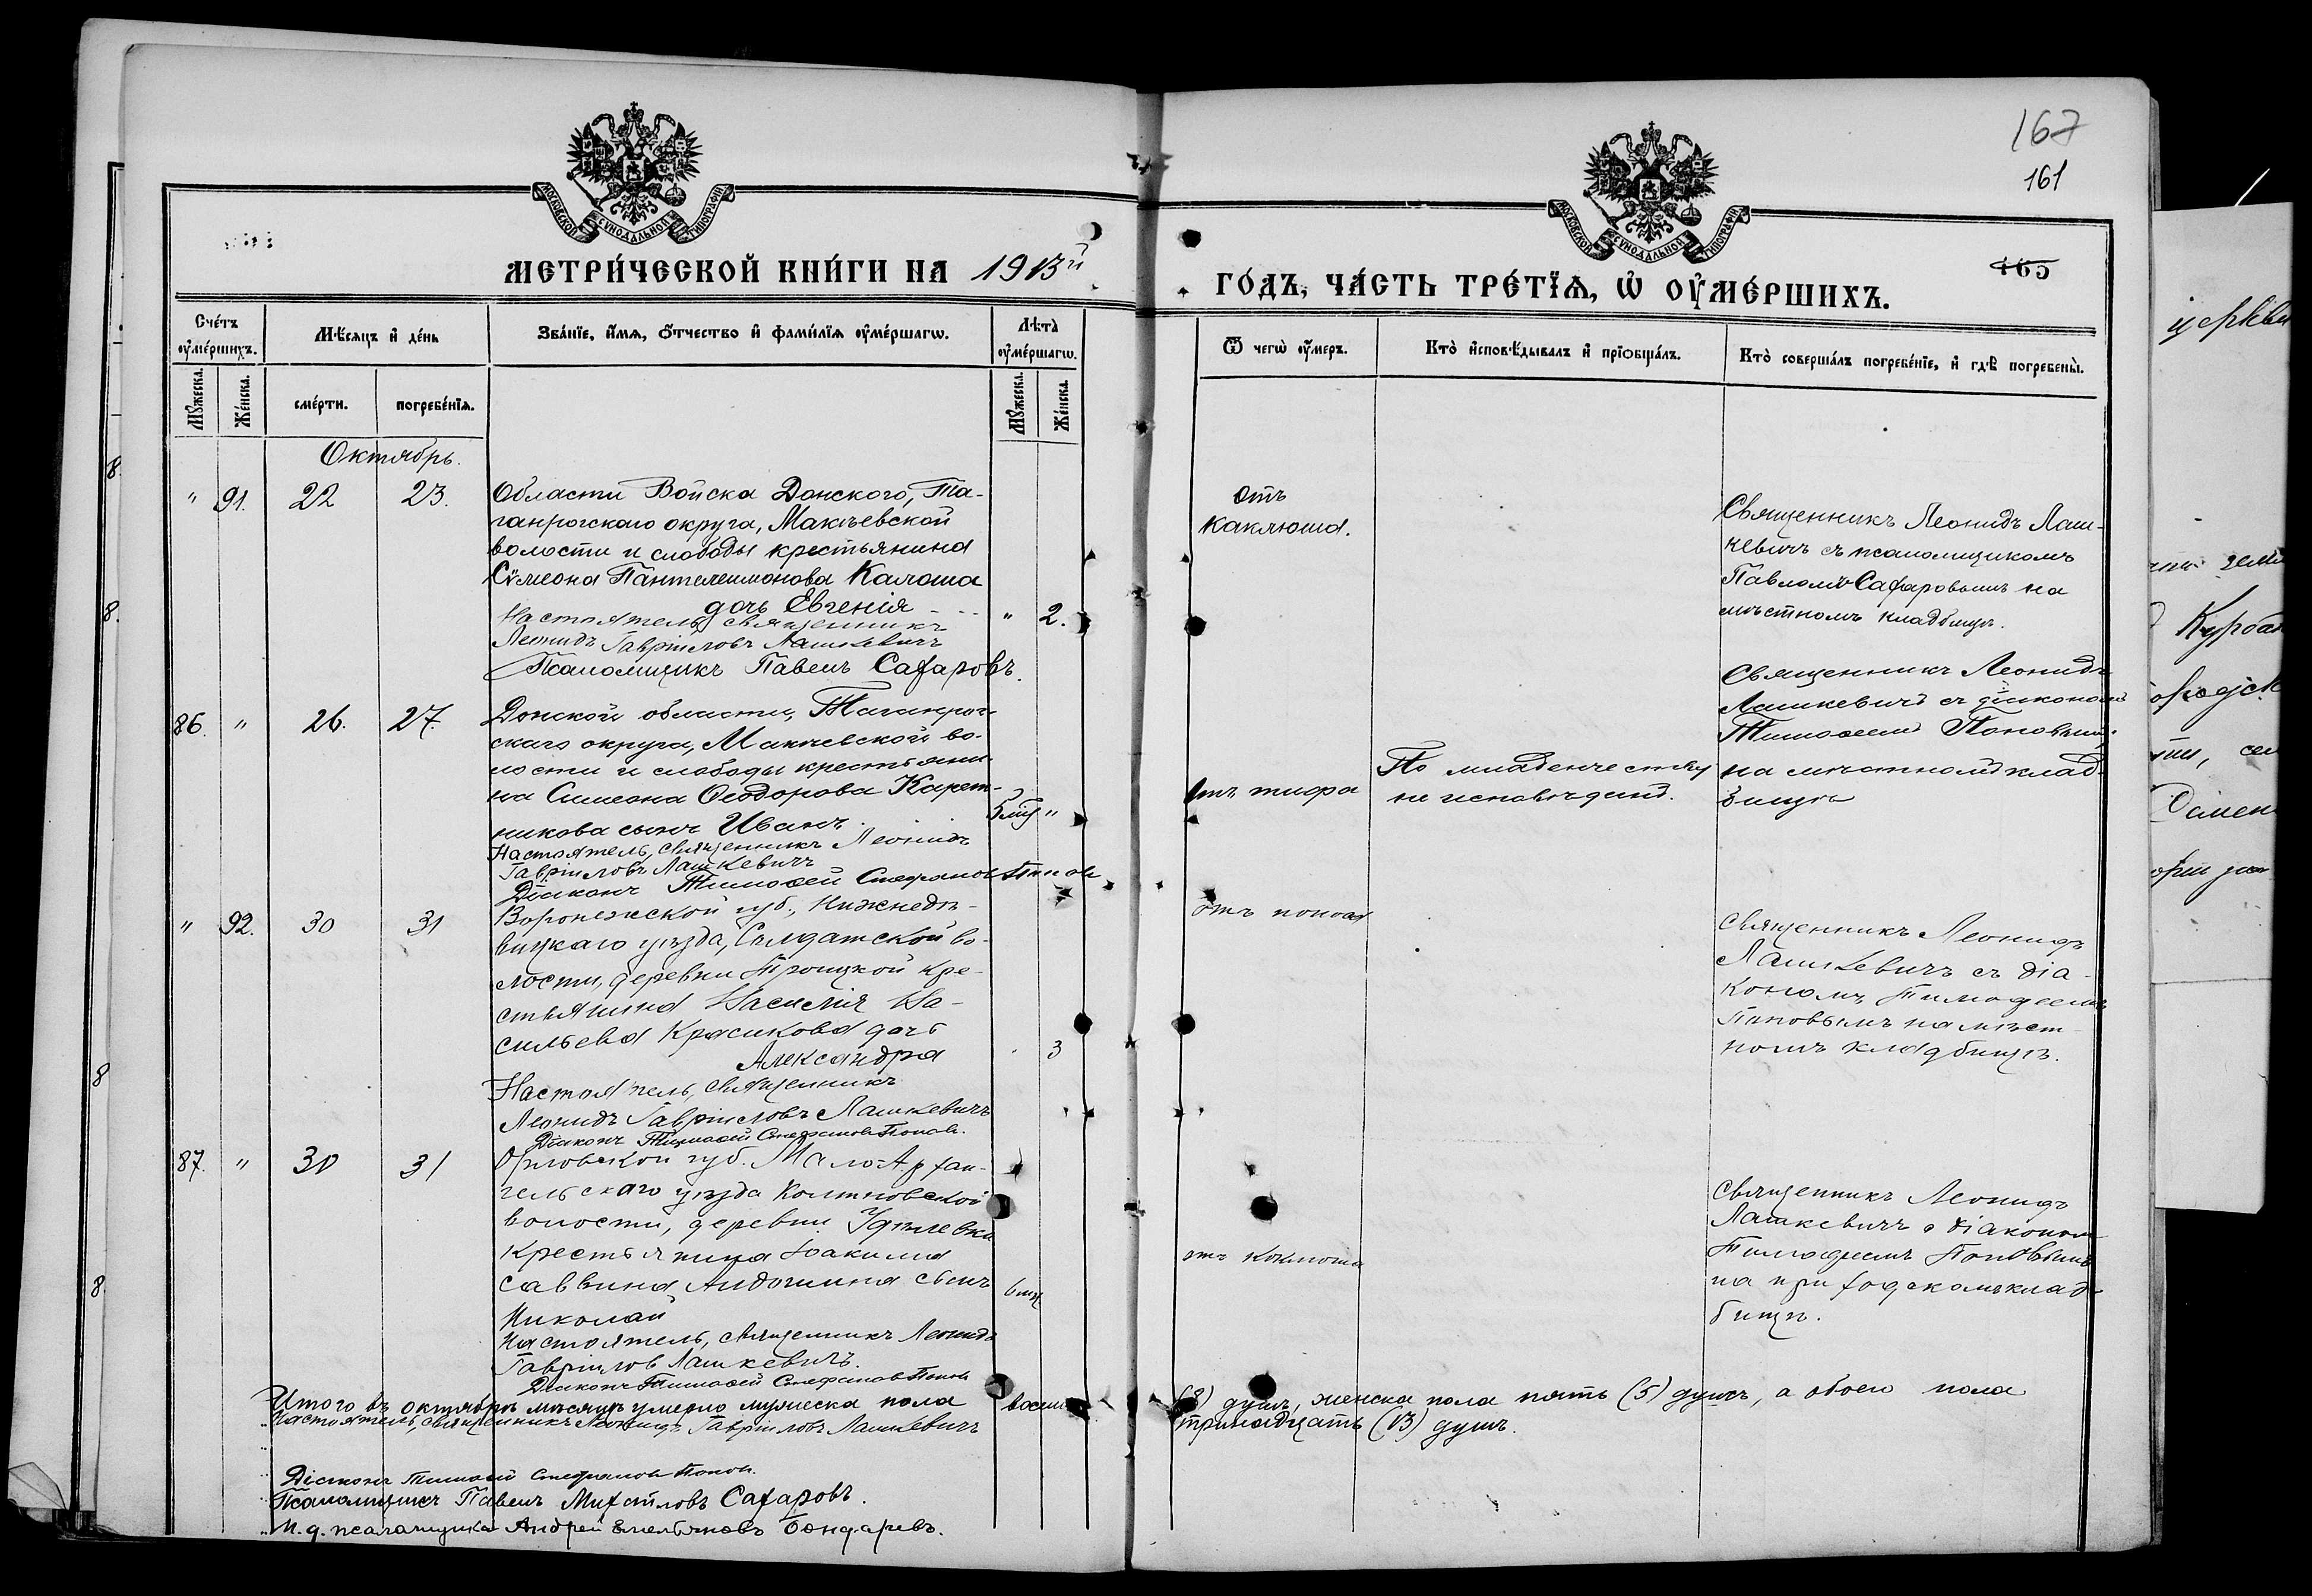 167
161
165
МОСКОВСКОЙ СѴНОДАЛЬНОЙ ТИПОГРАФІИ
МОСКОВСКОЙ СѴНОДАЛЬНОЙ ТИПОГРАФІИ
МЕТРИ́ЧЕСКОЙ КНИ́ГИ НА 1913й
ГО́ДЪ, ЧА́СТЬ ТРЕ́ТЇѦ, Ѡ҆ ОУ҆МЕ́РШИХЪ.
Сче́тъ оу҆ме́ршихъ.
Мѣ́сѧцъ и҆ де́нь
Зва́нїе, и҆́мѧ, ѻ҆́тчество и҆ фами́лїѧ оу҆ме́ршагѡ.
Лѣ́та оу҆ме́ршагѡ.
Ѿ чегѡ̀ оу҆́меръ.
Кто̀ и҆сповѣ́дывалъ и҆ прїѻбща́лъ.
Кто̀ соверша́лъ погребе́нїе, и҆ гдѣ̀ погребены̀.
Мꙋ́жеска.
Же́нска.
сме́рти.
погребе́нїѧ.
Мꙋ́жеска.
Же́нска.
Октябрь.
" 91. 22 23.
Области Войска Донского, Та-
ганрогскаго округа, Макѣевской
волости и слободы крестьянина
Сѵмеона Пантелеимонова Калоша
дочь Евгенія " 2.
Настоятель священникъ
Леонидъ Гавріиловъ Лашкевичъ
Псаломщикъ Павелъ Сафаровъ.
Отъ
Каклюша.
Священникъ Леонидъ Лаш-
кевичъ съ псаломщикомъ
Павломъ Сафаровымъ на
мѣстномъ кладбищѣ.
86. " 26. 27.
Донской области, Таганрог-
скаго округа, Макѣевской во-
лости и слободы крестьяни-
на Симеона Ѳеодорова Карет-
никова сынъ Иванъ. "
Настоятель, священникъ Леонидъ
Гавріиловъ Лашкевичъ
Діаконъ Тимоѳей Стефановъ Поповъ
Отъ тифа
По младенчеству
не исповѣданъ.
Священникъ Леонидъ
Лашкевичъ съ діакономъ
Тимоѳеемъ Поповымъ
на мѣстномъ клад-
бищѣ
" 92. 30 31
Воронежской губ., Нижнедѣ-
вицкаго уѣзда, Солдатской во-
лости, деревни Троицкой кре-
стьянина Василія Ва-
сильева Красикова дочь
Александра 3
Настоятель, священникъ
Леонидъ Гавріиловъ Лашкевичъ
Діаконъ Тимоѳей Стефановъ Поповъ.
отъ поноса
Священникъ Леонидъ
Лашкевичъ съ діа-
кономъ Тимоѳеемъ
Поповымъ на мѣст-
номъ кладбищѣ.
87. " 30 31
Орловской губ. Мало-Архан-
гельскаго уѣзда
волости, деревни
Крестьянина Іоакима
Саввина сынъ
Николай
Настоятель, священникъ Леонидъ
Гавріиловъ Лашкевичъ.
Діаконъ Тимоѳей Стефановъ Поповъ
отъ коклюша
Священникъ Леонидъ
Лашкевичъ с діакономъ
Тимоѳеемъ Поповымъ
на приходскомъ клад-
бищѣ.
Итого въ октябрѣ мѣсяцѣ умерло мужеска пола восемь (8) душъ, женска пола пять (5) душъ, а обоего пола
тринадцать (13) душъ.
Настоятель, священникъ Леонидъ Гавріиловъ Лашкевичъ
Діаконъ Тимоѳей Стефановъ Поповъ.
Псаломщикъ Павелъ Михайловъ Сафаровъ.
И. д. псаломщика Андрей Емельяновъ Бондаревъ.